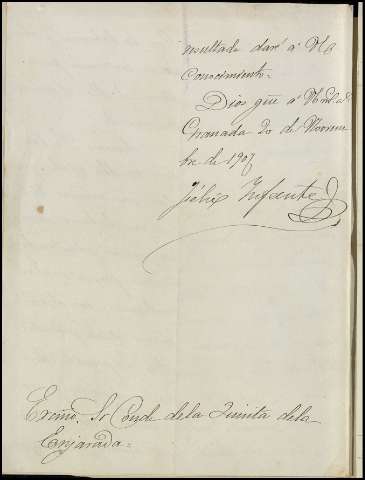 resultado daré á V.
conocimiento.
Dios gũe á V. m. a.
Granada 20 de Noviem
bre de 1907
Félix Infante
Exc̃mo. Sr Conde de la Quinta de la
Enjarada=